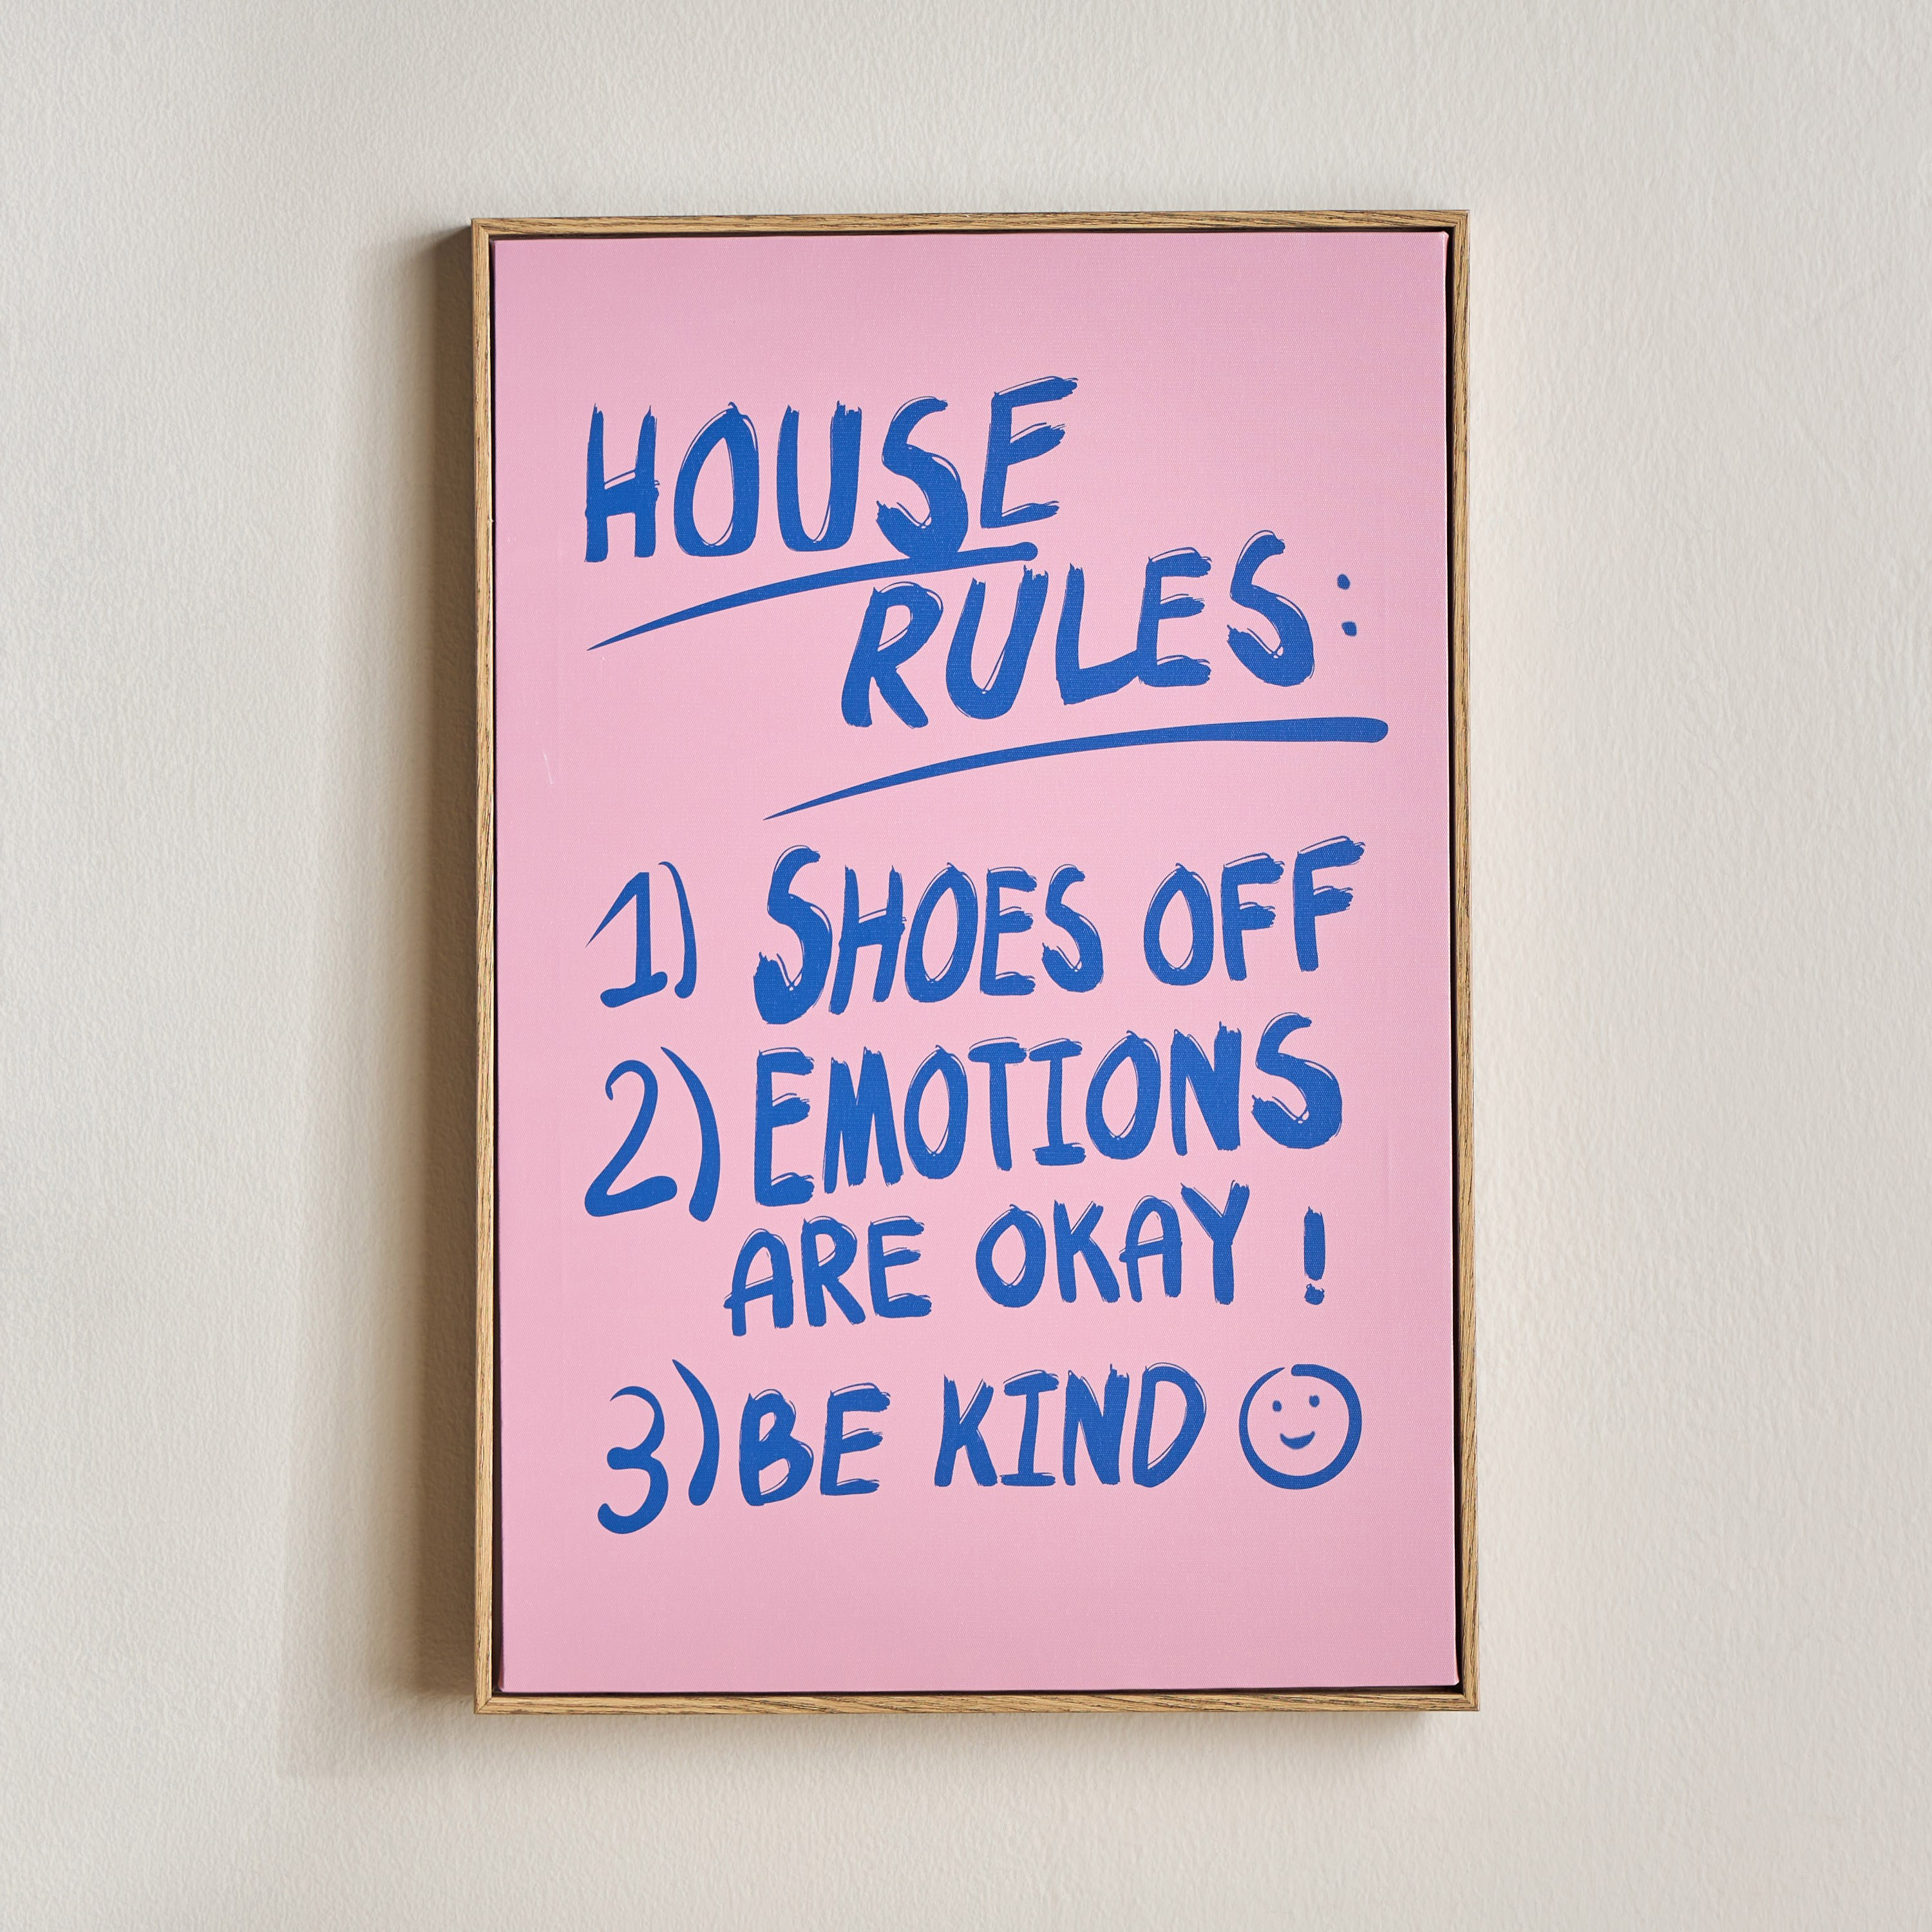 HOUSE
RULES:
1) SHOES OFF
2) EMOTIONS
ARE OKAY!
3) BE KIND